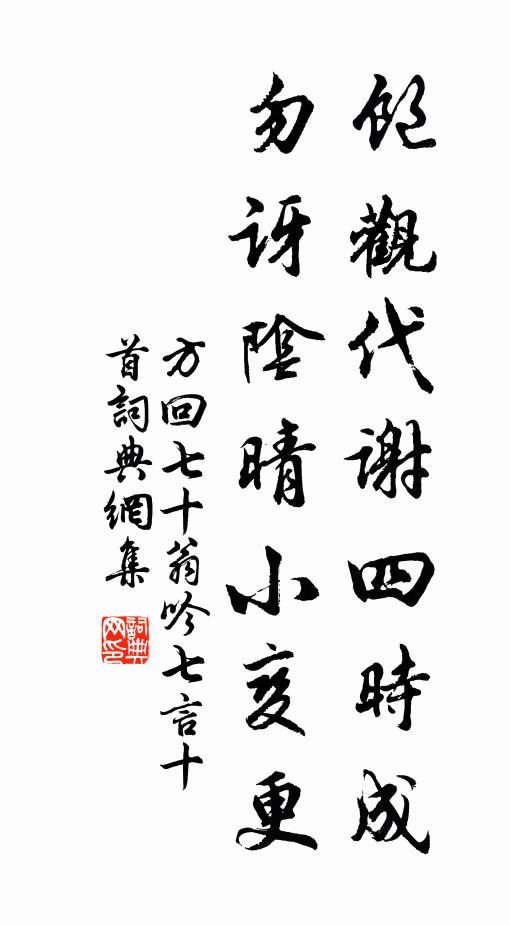 飽觀代謝四時成
勿訝陰晴小變更
方回七十翁吟七言十
首詞典網集
詞典网印